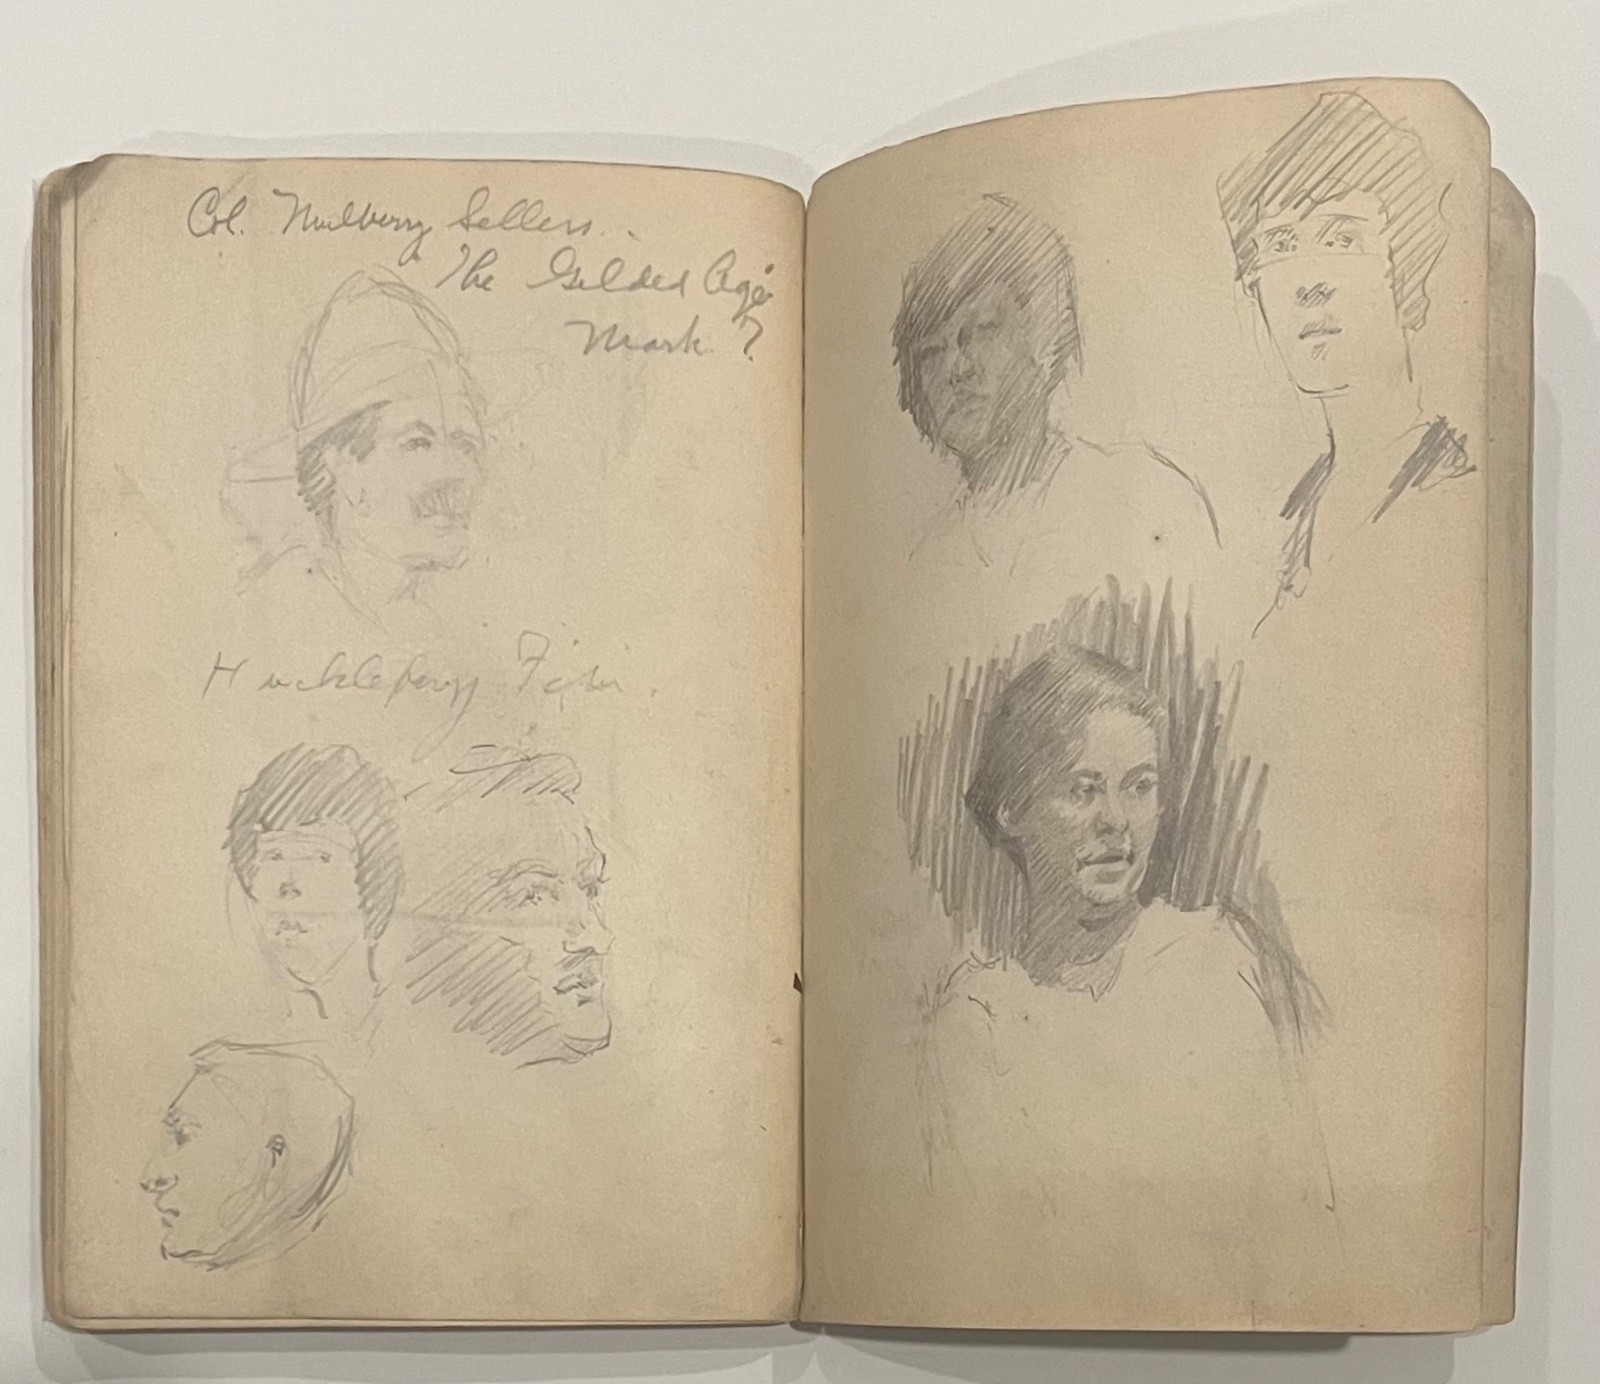 Col. Mulberry Sellers..
The Gilded Age
Mark T.
Huckleberry Finn.